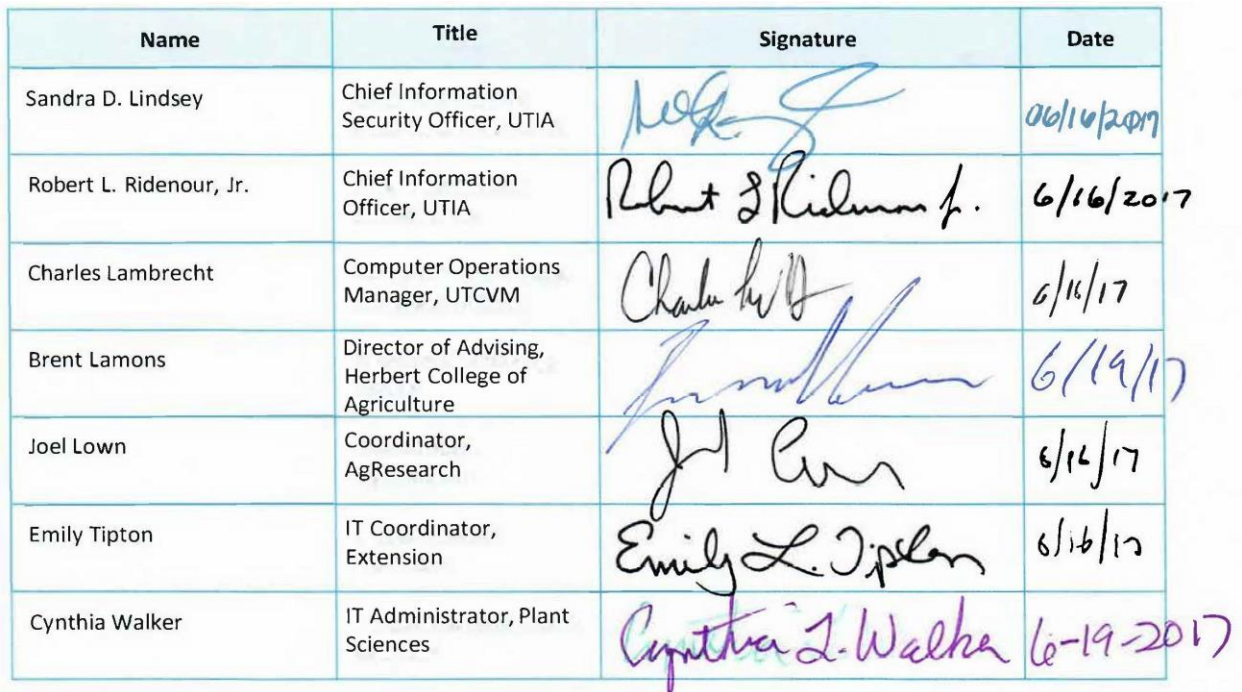 Name Title Signature Date
Sandra D. Lindsey Chief Information
Security Officer, UTIA 06/16/2017
Robert L. Ridenour, Jr. Chief Information
Officer, UTIA Robert L Ridenour Jr. 6/16/2017
Charles Lambrecht Computer Operations
Manager, UTCVM Charles 6/16/17
Brent Lamons Director of Advising,
Herbert College of
Agriculture 6/19/17
Joel Lown Coordinator,
AgResearch 6/16/17
Emily Tipton IT Coordinator,
Extension Emily L. Tipton 6/16/17
Cynthia Walker IT Administrator, Plant
Sciences Cynthia L. Walker 6-19-2017